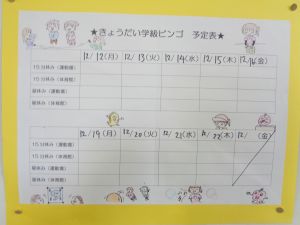 ★きょうだい学級ビンゴ 予定表★
12/12(月) 12/13(火) 12/14(水) 12/15(木) 12/16(金)
15分休み(運動場)
15分休み(体育館)
昼休み(運動場)
昼休み(体育館)
12/19(月) 12/20(火) 12/21(水) 12/22(木) 12/ (金)
15分休み(運動場)
15分休み(体育館)
昼休み(運動場)
昼休み(体育館)